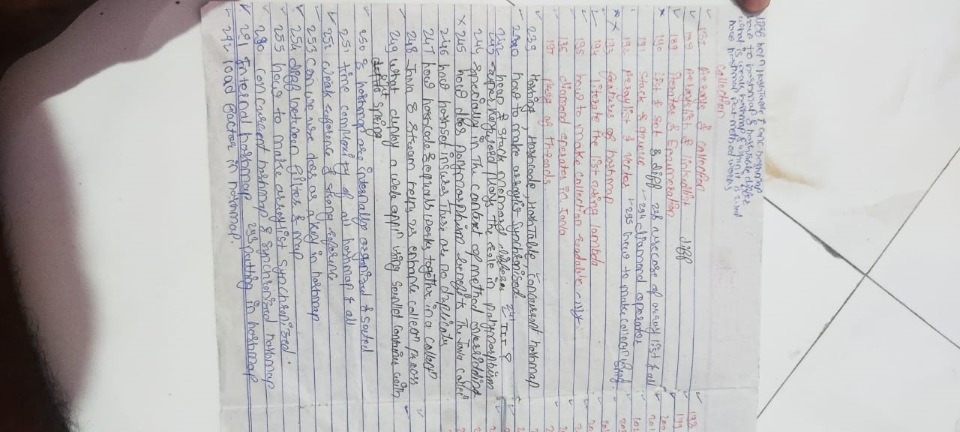 how to hashmap & hashtable differ
what is weak hashmap & when it is used
how hashmap put method works
Collection
187 Array & Collection
188 Arraylist & linkedlist diff
189 iterator & Enumeration
190 list & set & diff 296 usecase of array list & all
191 Stack & queue 294 diamond operator
192 Arraylist & vector 295 how to make collec
193 features of hashmap
194 literate the list using lambda
195 how to make collection readable only
196 diamond operator in Java
197 of threads
239 Hashing Hashcode, HashTable, Concurrent hashmap
how to make arraylist synchronised
242 heap & stack memory
243 super keyword plays the role in polymorphism
244 specially in the context of method overridding
245 how does polymorphism benefits the Java
246 how hashset insures there are no duplicats
247 how hashcode & equals works together in a collectn
248 Java 8 Stream helps us enhance collectn
249 what deploy a web appn using Servlet container with
spring
250 & hashmap are internally organized & sorted
251 time complexity of all hashmap & all
252 weak reference & strong reference
253 can we use as a key in hashmap
254 diff between filter & map
255 how to make arraylist synchronized.
290 concurrent hashmap & synchronized hashmap
291 Internal hashmap 293 putting in hashmap
292 load factor in hashmap.
193
199
200
201